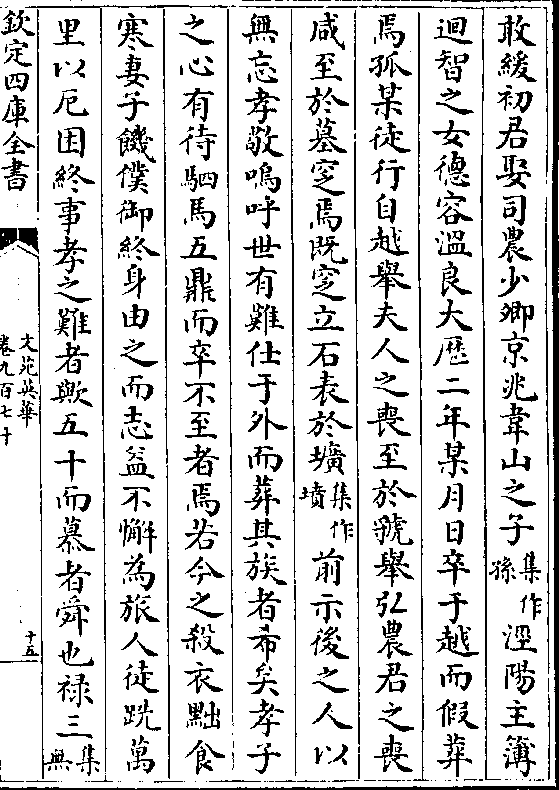 敢緩初君娶司農少卿京兆韋山之子集作孫涇陽主簿
迴智之女德容温良大歴二年某月日卒于越而假葬
焉孤某徒行自越舉夫人之喪至於虢舉弘農君之喪
咸至於墓窆焉既窆立石表於壙集作墳前示後之人以
無忘孝敬嗚呼世有難仕于外而葬其族者希矣孝子
之心有待駟馬五鼎而卒不至者焉若今之殺衣黜食
寒妻子饑僕御終身由之而志益不懈為旅人徒跣萬
里以厄困終事孝之難者歟五十而慕者舜也禄三集無
欽定四庫全書
文苑英華
卷九百七十
十五